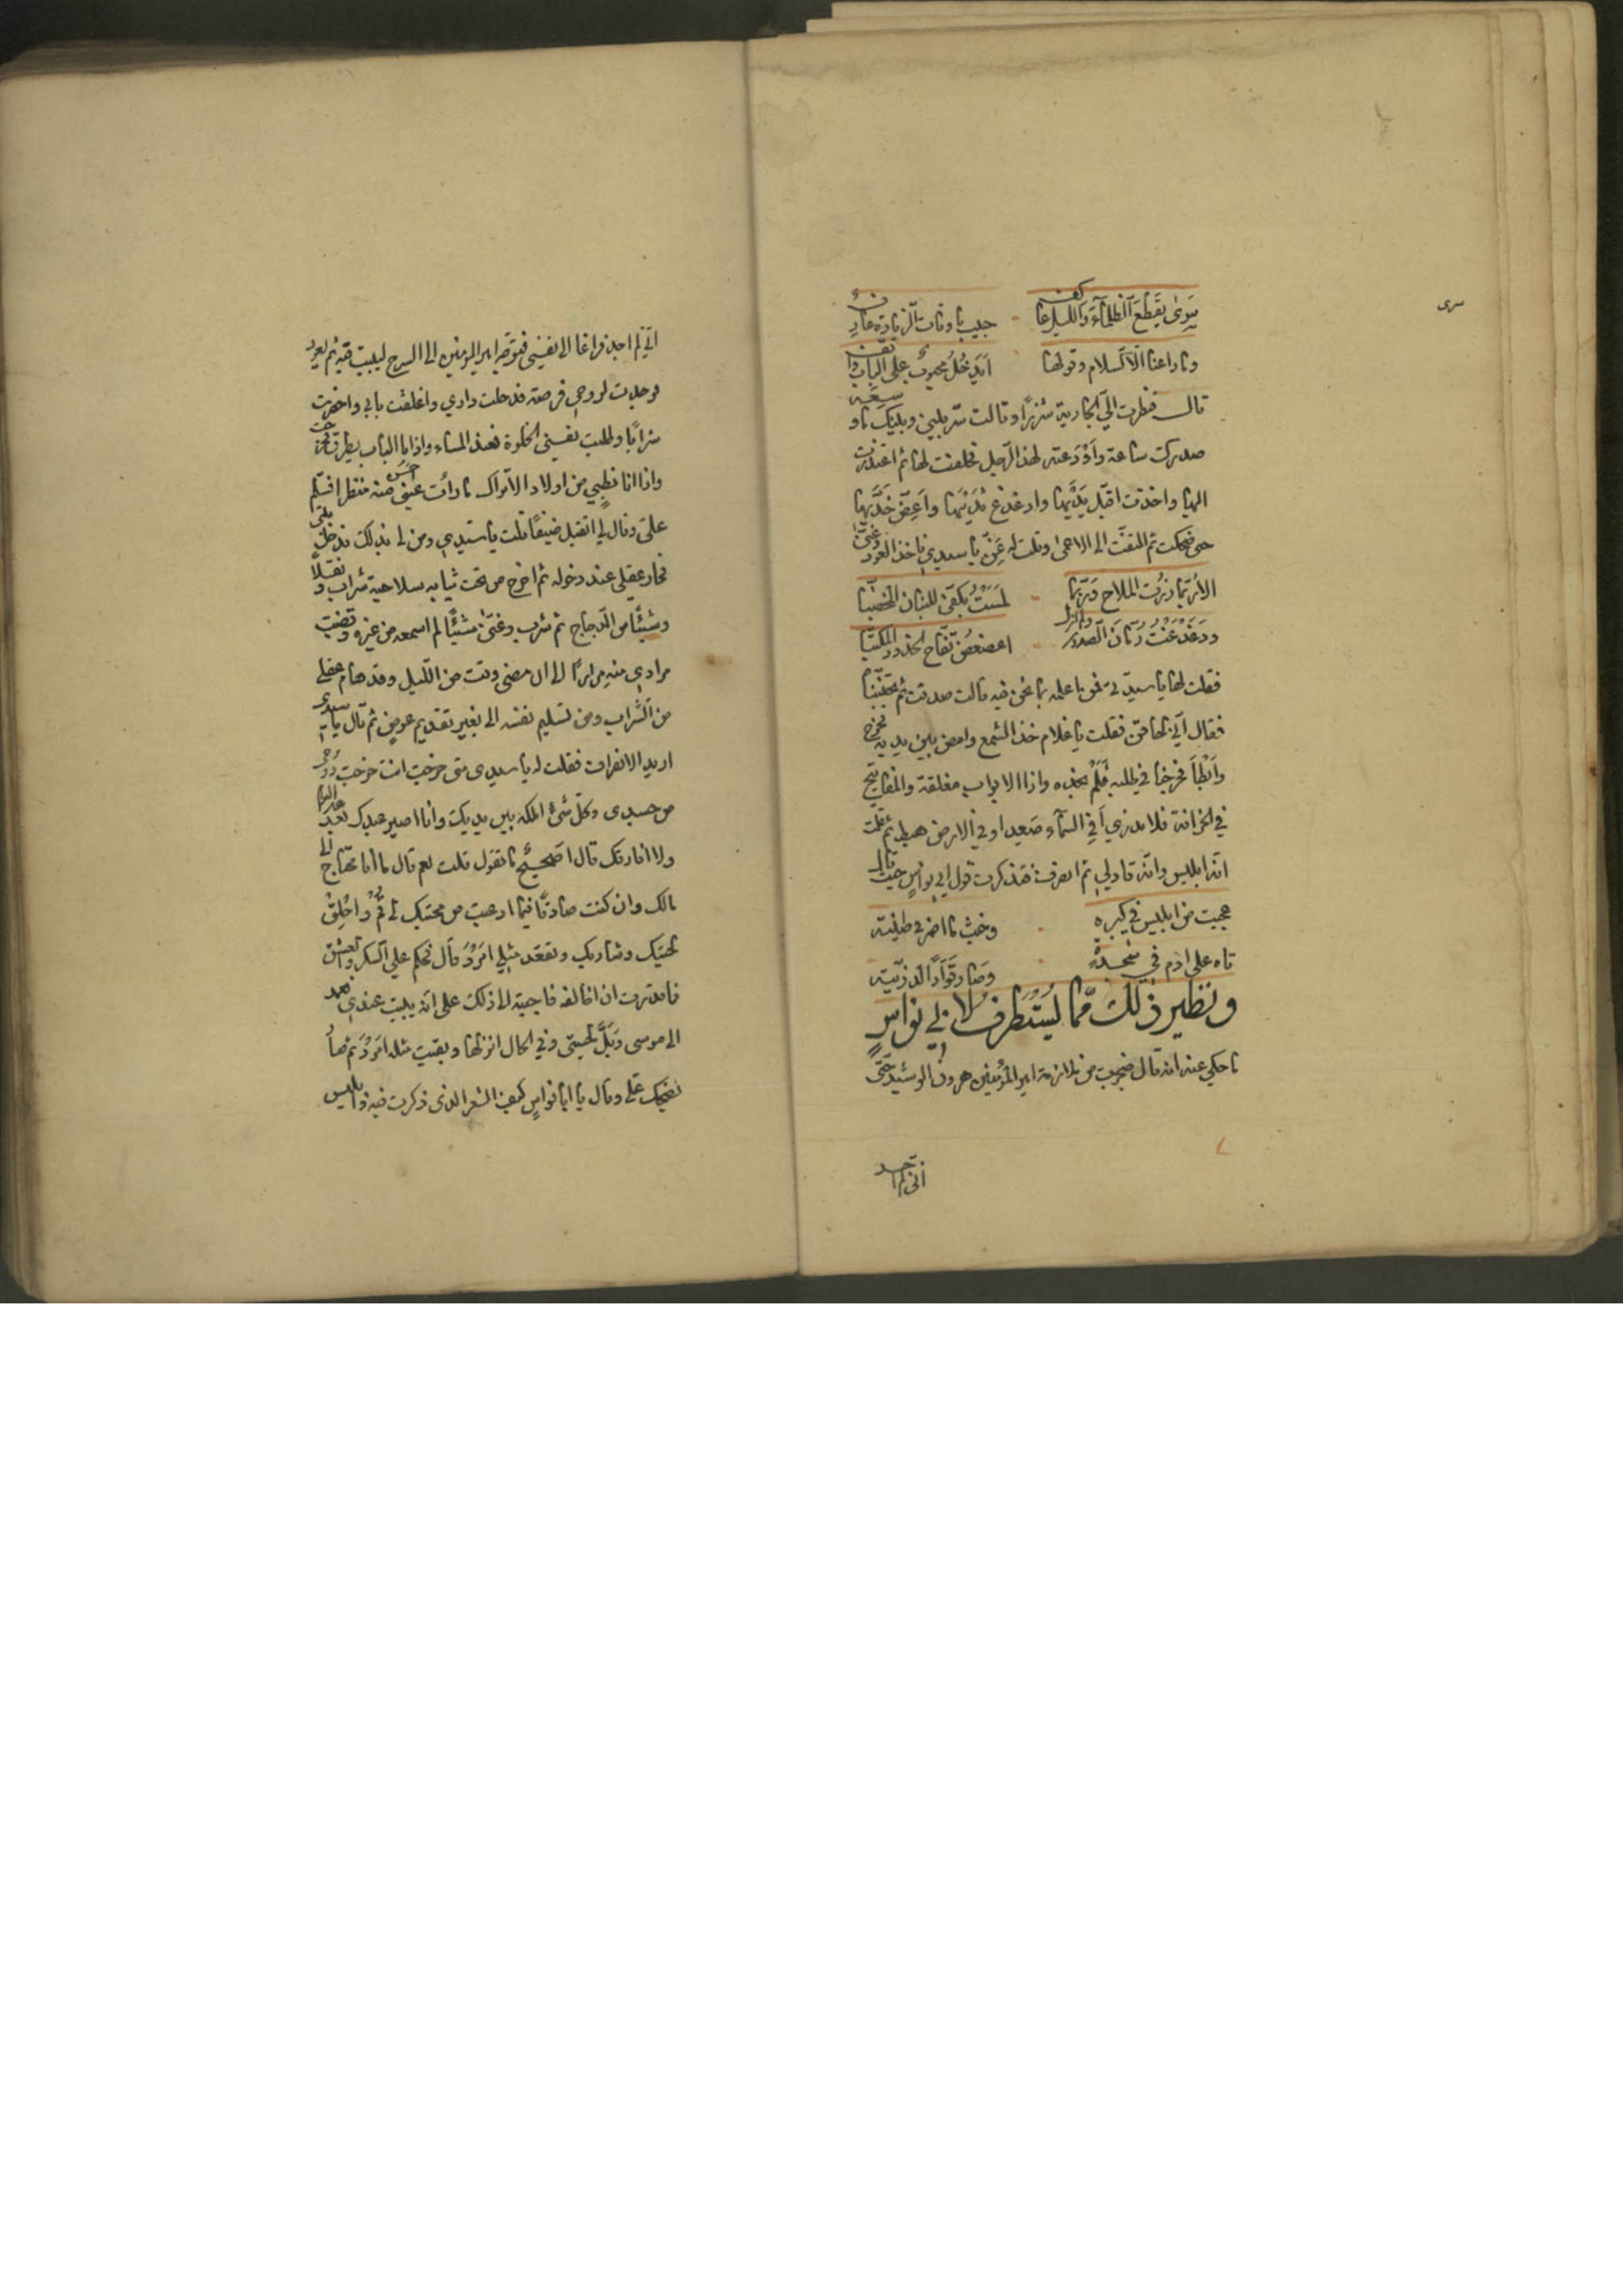 سرى يقطع الظلماء والليل عاكف حبيب باوقات الزيارة عارف
وما راعنا الا السلام وقولها ايدخل محبوب على الباب واقف
قال فنظرت الي الجارية شزرا وقالت سر بيني وبينك ما وسعه
صدرك ساعة واودعته لهذا الرجل فحلفت لها ثم اعتذرت
اليها واخذت اقبل يديها وادغدغ ثدييها واعض خديها
حتى ضحكت ثم التفت الى الاعمى وقلت له غن يا سيدي فاخذ العود وغنى
الا ربما زرت الملاح وربما لمست بكفي البنان المخضبا
ودغدغت رمان الصدور ولم ازل اعضعض تفاح الخدود المكتبا
فقلت لها يا سيدتي فمن اعلمه بما نحن فيه قالت صدقت ثم تجنبنا
فقال اني حاقن فقلت يا غلام خذ الشمع وامض بين يديه فخرج
وابطأ فخرجنا في طلبه فلم نجده واذا الابواب مغلقة والمفاتيح
في الخزانة فلا ندري أفي السماء صعد او في الارض هبط ثم علمت
انه ابليس وانه قاد لي ثم انصرف فتذكرت قول ابي نواس حيث قال
عجبت من ابليس في كبره وخبث ما اضمر في طينته
تاه على ادم في سجدة وصار قوادا لذريته
ونظير ذلك مما يستظرف لابي نواس
ما حكي عنه انه قال ضجرت من ملازمة امير المؤمنين هرون الرشيد حتى
اني لم اجد
سرى
اني لم اجد فراغا الى نفسي فتوجه امير المومنين الى السرح ليبيت فيه ثم يعود
فوجدت لروحي فرصة فدخلت داري واغلقت بابي واحضرت
شرابا وطلبت نفسي الخلوة فعند المساء واذا بالباب يطرق فخرجت
واذا انا بظبي من اولاد الاتراك ما رأت عيني احسن منه منظرا فسلم
علي وقال لي اتقبل ضيفا قلت يا سيدي ومن لي بذلك فدخل بيتي
فحار عقلي عند دخوله ثم اخرج من تحت ثيابه سلاحية شراب ونقلا
وشيئا من الدجاج ثم شرب وغنى شيئا لم اسمعه من غيره وقضيت
مرادي منه مرارا الى ان مضى وقت من الليل وقد هام عقلي
من الشراب ومن تسليم نفسه الي بغير تقديم عوض ثم قال يا سيدي
اريد الانصراف فقلت له يا سيدي متى خرجت انت خرجت روحي
من جسدي وكل شئ املكه بين يديك وانا اصير عبدك بعد هذا اليوم
ولا افارقك قال اصحيح ما تقول قلت نعم قال ما انا محتاج الى
مالك وان كنت صادقا فيما ادعيت من محبتك لي قم واحلق
لحيتك وشاربك وتقعد مثلي امرد قال فحكم علي السكر والعشق
فما قدرت ان اخالفه فاجبته الى ذلك على انه يبيت عندي فعمد
الى موسى وبل لحيتي وفي الحال انزلها وبقيت مثله امرد ثم صار
يضحك علي وقال يا ابا نواس كيف الشعر الذي ذكرت فيه ابليس